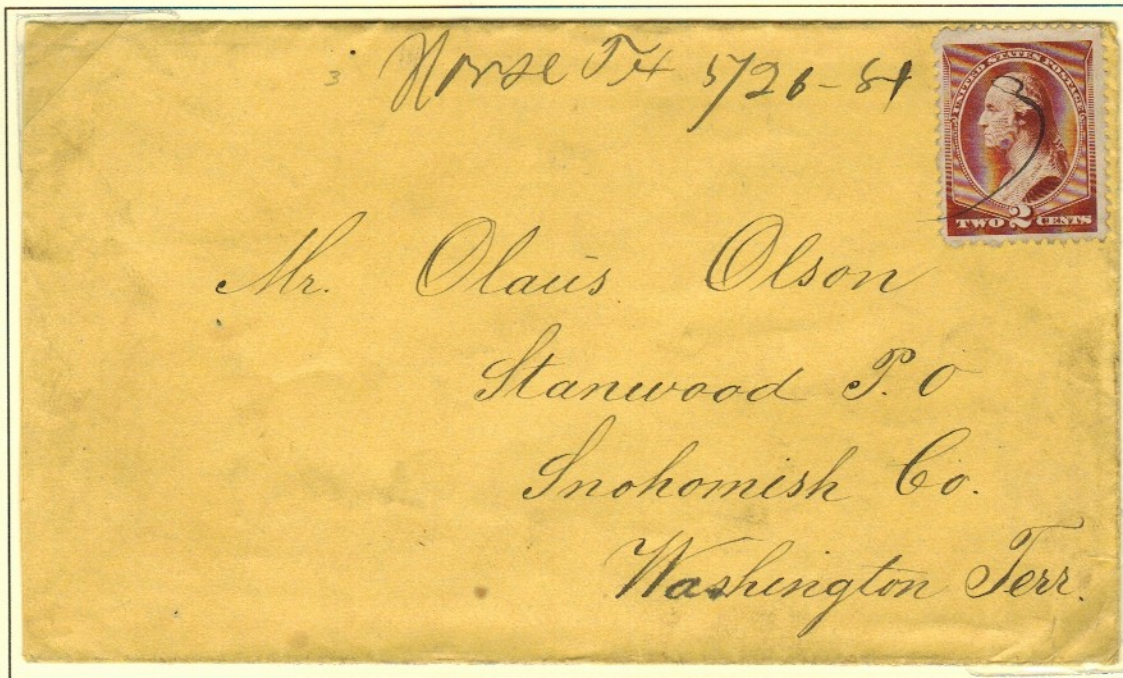 3 Norse Tex 5/26-84
UNITED STATES POSTAGE
TWO 2 CENTS
Mr. Olaus Olson
Stanwood P.O
Snohomish Co.
Washington Terr.